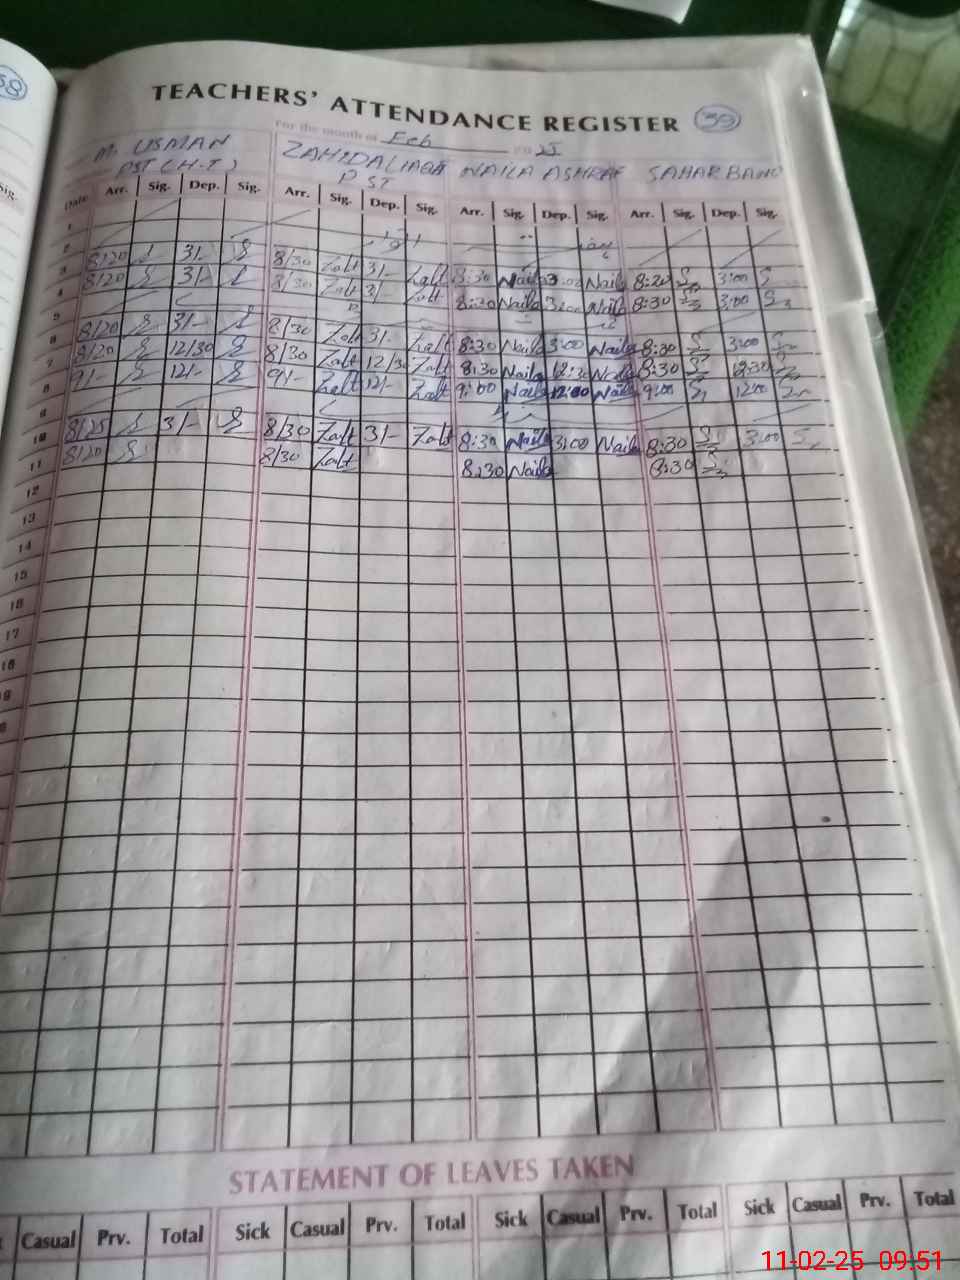 38
TEACHERS' ATTENDANCE REGISTER 39
For the month of Feb 25
M. USMAN ZAHIDA LIAQAT NAILA ASHRAF SAHAR BANO
PST (H.T) PST
Sig.
Date Arr. Sig. Dep. Sig. Arr. Sig. Dep. Sig. Arr. Sig. Dep. Sig. Arr. Sig. Dep. Sig.
1
2
3 8/20 3/- 8/30 Zalt 3/- Zalt 8:30 Naila 3:00 Naila 8:20 3:00
4 8/20 3/- 8/30 Zalt 3/- Zalt 8:30 Naila 3:00 Naila 8:30 3:00
5
6 8/20 3/- 8/30 Zalt 3/- Zalt 8:30 Naila 3:00 Naila 8:30 3:00
7 8/20 12/30 8/30 Zalt 12/30 Zalt 8:30 Naila 12:30 Naila 8:30 12:30
8 9/- 12/- 9/- Zalt 12/- Zalt 9:00 Naila 12:00 Naila 9:00 12:00
9
10 8/25 3/- 8/30 Zalt 3/- Zalt 8:30 Naila 3:00 Naila 8:30 3:00
11 8/20 8/30 Zalt 8:30 Naila 8:30
12
13
14
15
16
17
18
STATEMENT OF LEAVES TAKEN
Casual Prv. Total Sick Casual Prv. Total Sick Casual Prv. Total Sick Casual Prv. Total
11-02-25 09:51